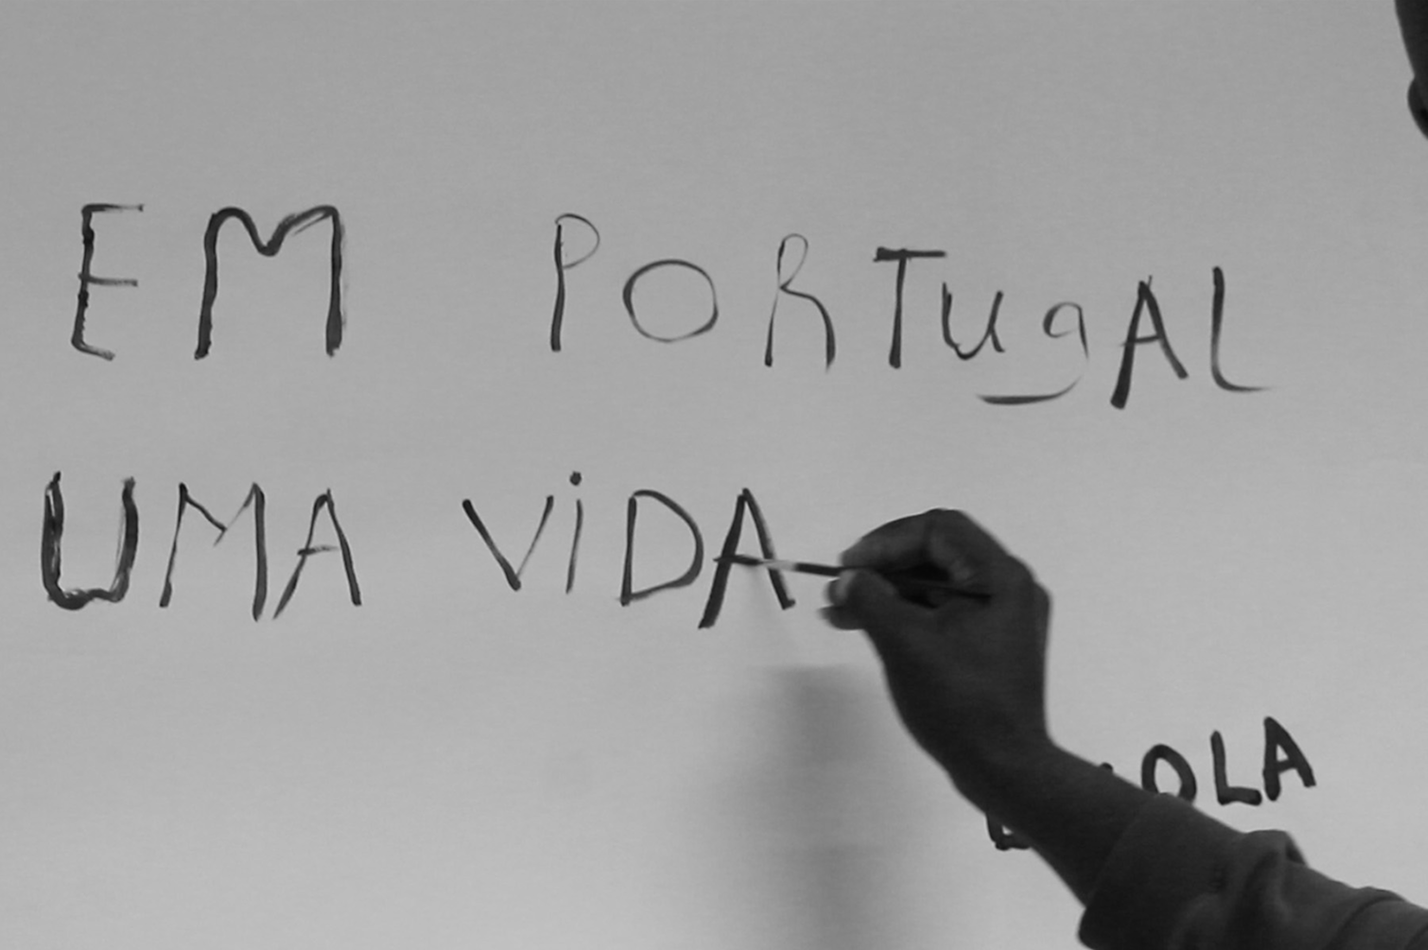 EM PORTUgAL
UMA ViDA